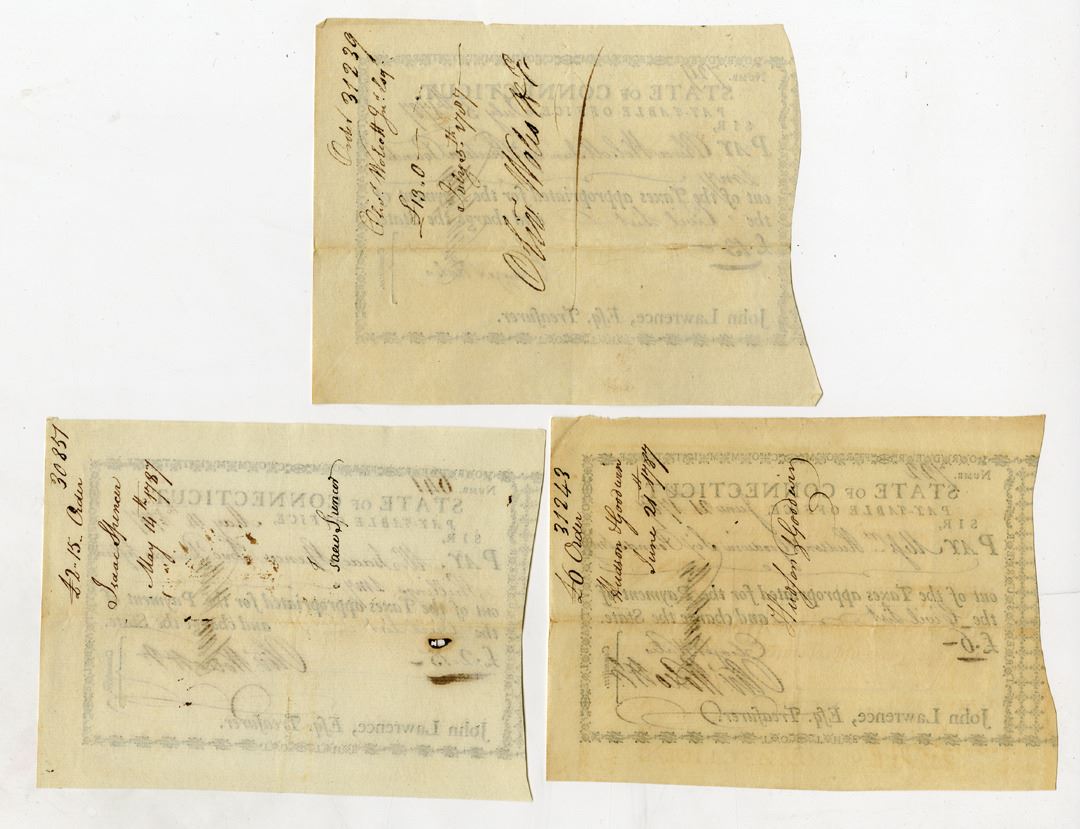 Order 31239
Olivr Wolcott Jur Esqr
£13.0
July 5th 1787
Olivr Wolcott Jr
NUMB.
STATE OF CONNECTICUT.
PAY-TABLE OFFICE,
SIR,
PAY
out of the Taxes appropriated for the Payment of
the Civil List and charge the State.
£.13
John Lawrence, Esq. Treasurer.
30851
£2.15 Order
Isaac Spencer
May 14th 1787
Isaac Spencer
NUMB.
STATE OF CONNECTICUT.
PAY-TABLE OFFICE, May 14
SIR,
PAY Isaac Spencer
out of the Taxes appropriated for the Payment
the and charge the State.
£.2.15
John Lawrence, Esq. Treasurer.
31243
£6 Order
Hudson & Goodwin
June 21st 1787
Hudson & Goodwin
NUMB.
STATE OF CONNECTICUT
PAY-TABLE OFFICE, June 21
SIR,
PAY Messrs Hudson & Goodwin
out of the Taxes appropriated for the Payment of
the Civil List and charge the State.
£.6
John Lawrence, Esq. Treasurer.